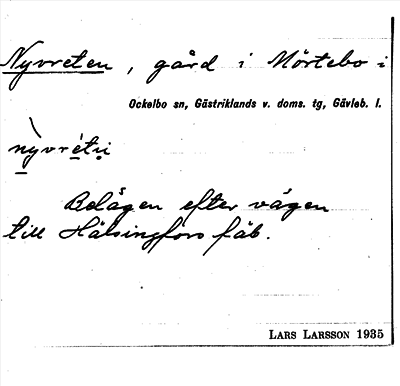 Nyvreten, gård i Mörtebo i
Ockelbo sn, Gästriklands v. doms. tg, Gävleb. l.
Belägen efter vägen
till Hälsingfors fäb.
LARS LARSSON 1935